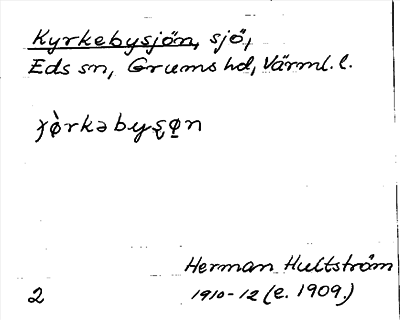 Kyrkebysjön, sjö,
Eds sn, Grums hd, Värml. l.
2
Herman Hultström
1910-12 (e. 1909.)